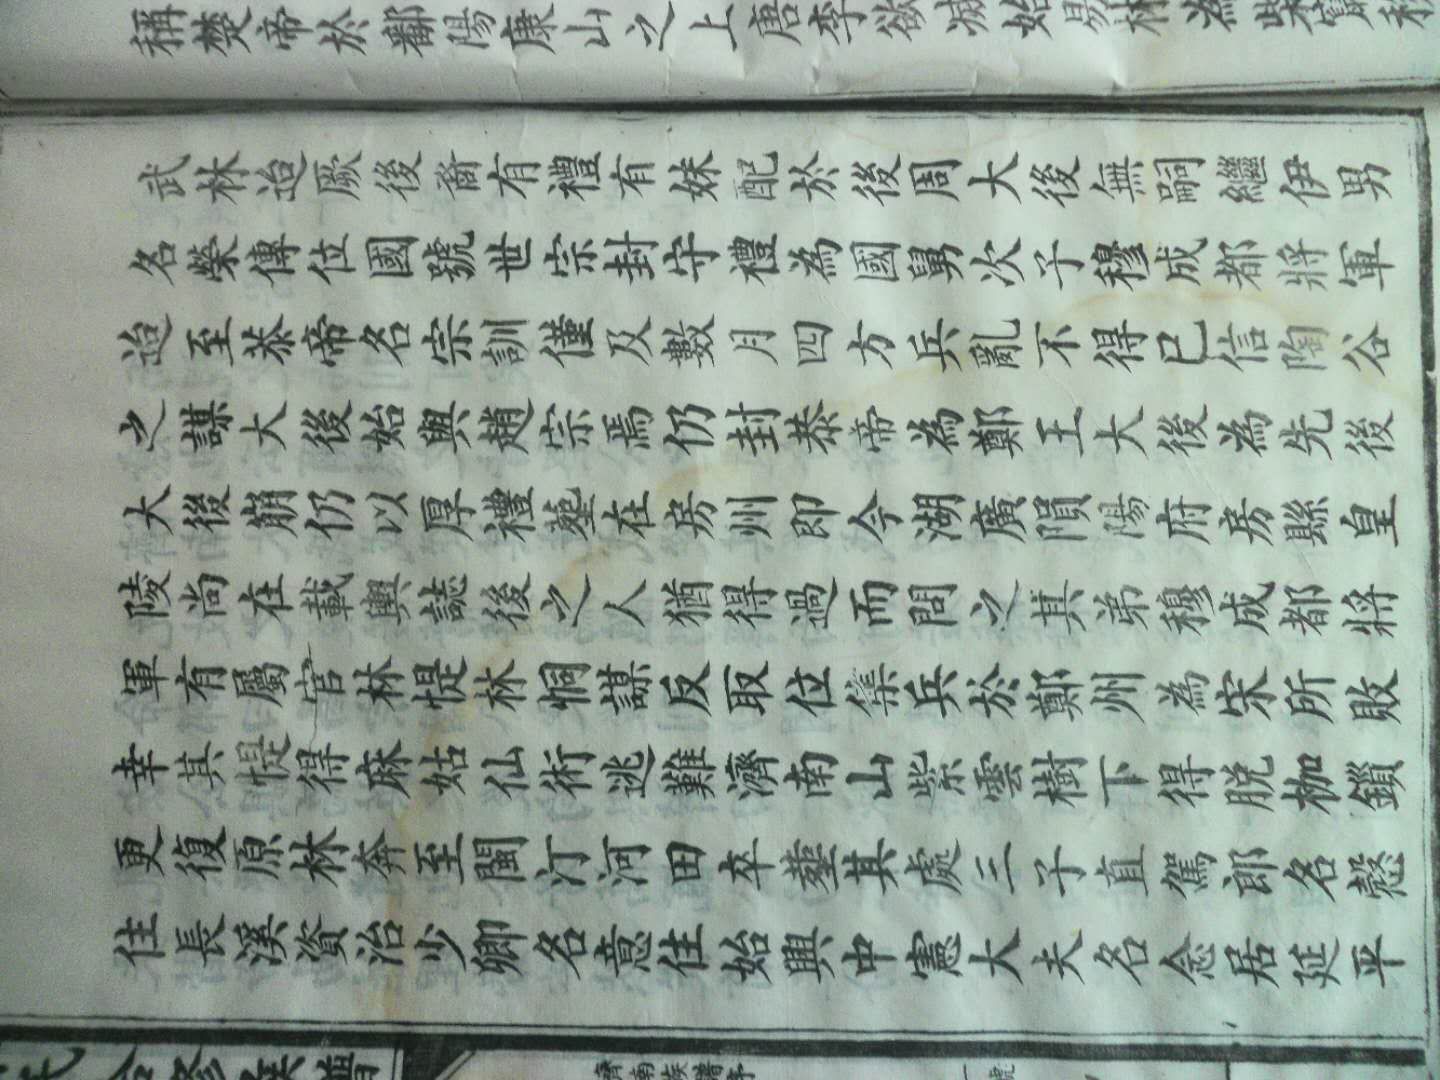 稱楚帝於鄱陽康山之上唐李欲滅始易林為柴竄移
武林迨厥後裔有禮有妹配於後周大後無嗣繼伊男
名榮傳位國號世宗封守禮為國舅次子穆成都將軍
迨至恭帝名宗訓僅及數月四方兵亂不得已信陶谷
之謀大後始與趙宗焉仍封恭帝為鄭王大後為先後
大後崩仍以厚禮塟在房州即今湖廣隕陽府房縣皇
陵尚在載輿誌後之人猶得過而問之其弟穆成都將
軍有屬官林惿林恫謀反取位集兵於鄭州為宋所敗
幸其惿得麻姑仙術逃難濟南山紫雲樹下得脫枷鎖
更復原林奔至閩汀河田卒塟其處三子直駕郎名愨
住長溪資治少卿名意住始興中憲大夫名念居延平
濟南族譜序